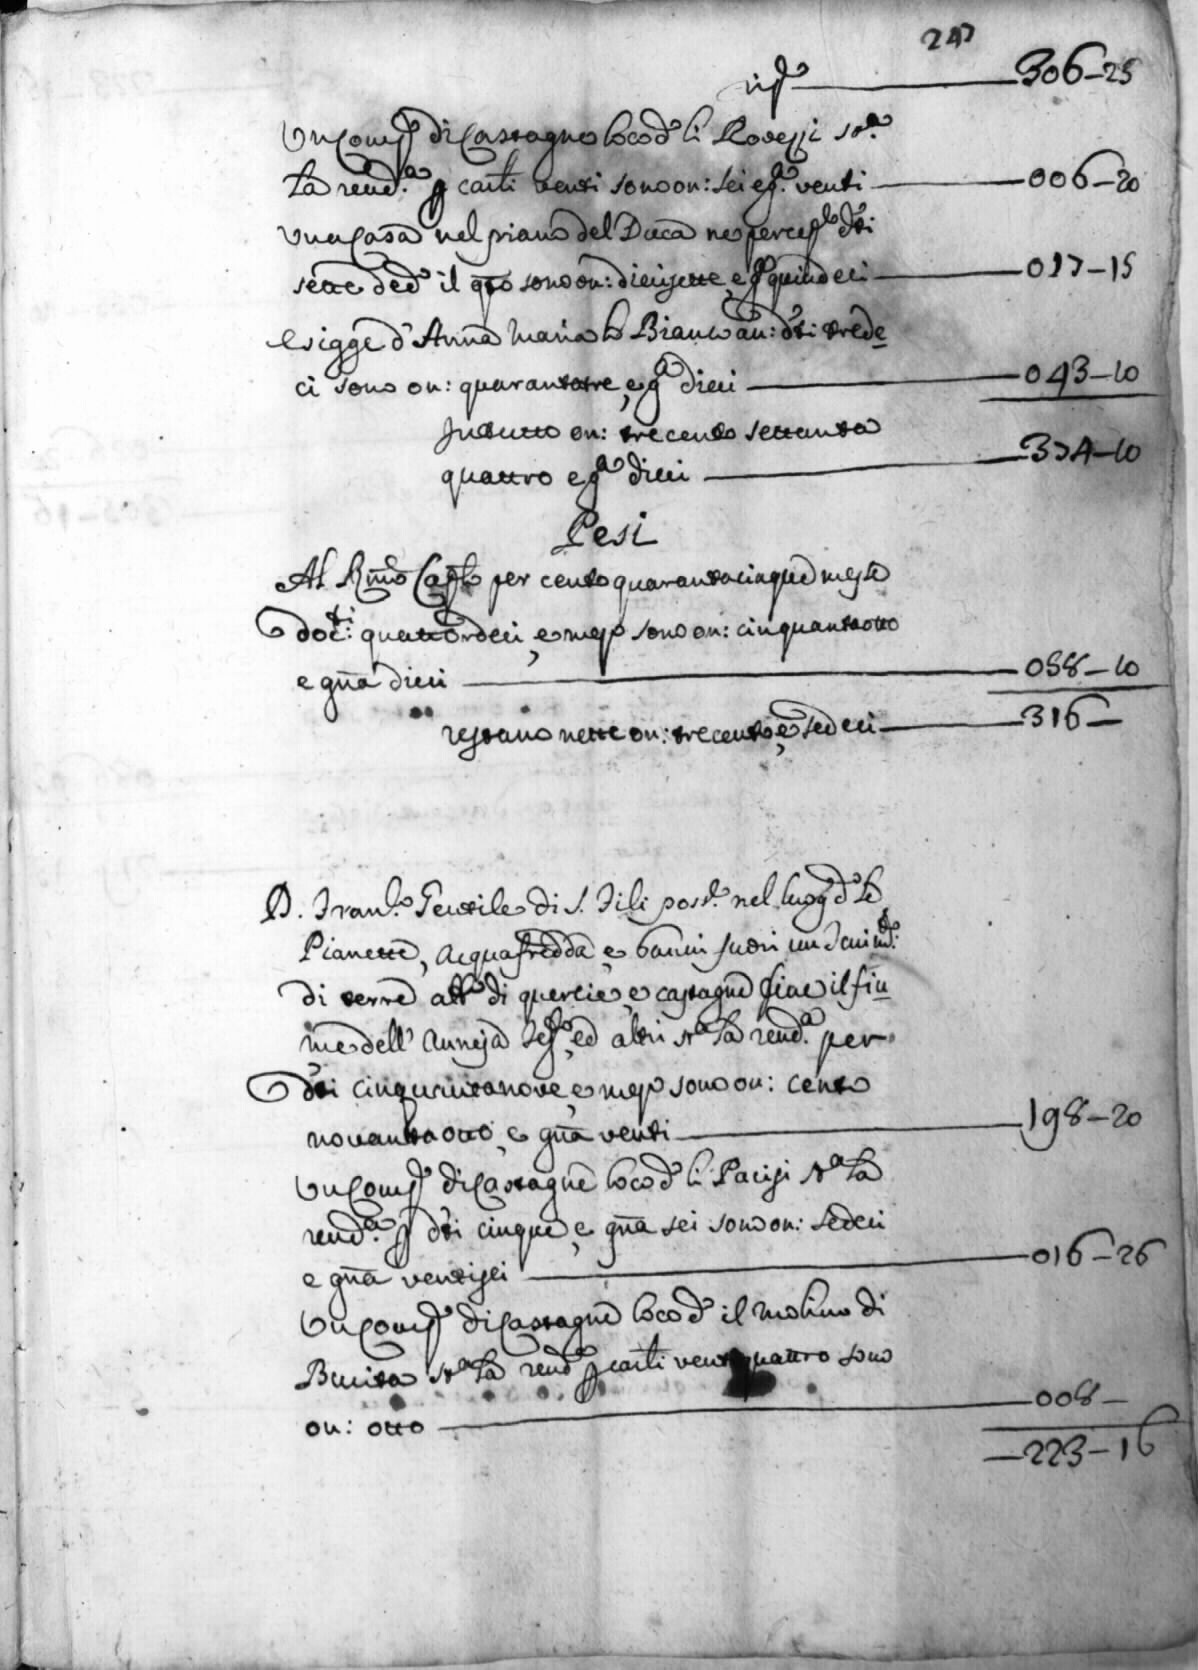 247
306-25
Un Comp.o di Castagne loco d.o li Rovezzi st.a
la rend.a p carli venti sono on: sei e g.a venti 006-20
Una Casa nel piano del Duca ne percepe d.ti
sette ded.o il q.to sono on: diecisette, e g.a quindeci 017-15
Esigge d'Anna Maria lo Bianco an: d.ti trede
ci sono on: quarantatre, e g.a dieci 043-10
In tutto on: trecento settanta
quattro e g.a dieci 374-10
Pesi
Al R.mo Cap.lo per cento quarantacinque messe
doc.ti quattordeci, e mezo sono on: cinquantaotto
e gna dieci 058-10
restano nette on: trecento, e sedeci 316
D. Fran.co Gentile di S. Fili poss.e nel luogo d.o le
Pianette, Acquafredda, e banni fuori un
di terre alb.e di quercie, e castagne fine il fiu
me dell' ed altri st.a la rend.a per
d.ti cinquantanove, e mezo sono on: cento
novantaotto, e gna venti 198-20
Un Comp.o di Castagne loco d.o li Pacisi st.a la
rend.a p d.ti cinque, e gna sei sono on: sedeci
e gna ventisei 016-26
Un Comp.o di Castagne loco d.o il molino di
Bucita st.a la rend.a p carli ventiquattro sono
on: otto 008
223-16